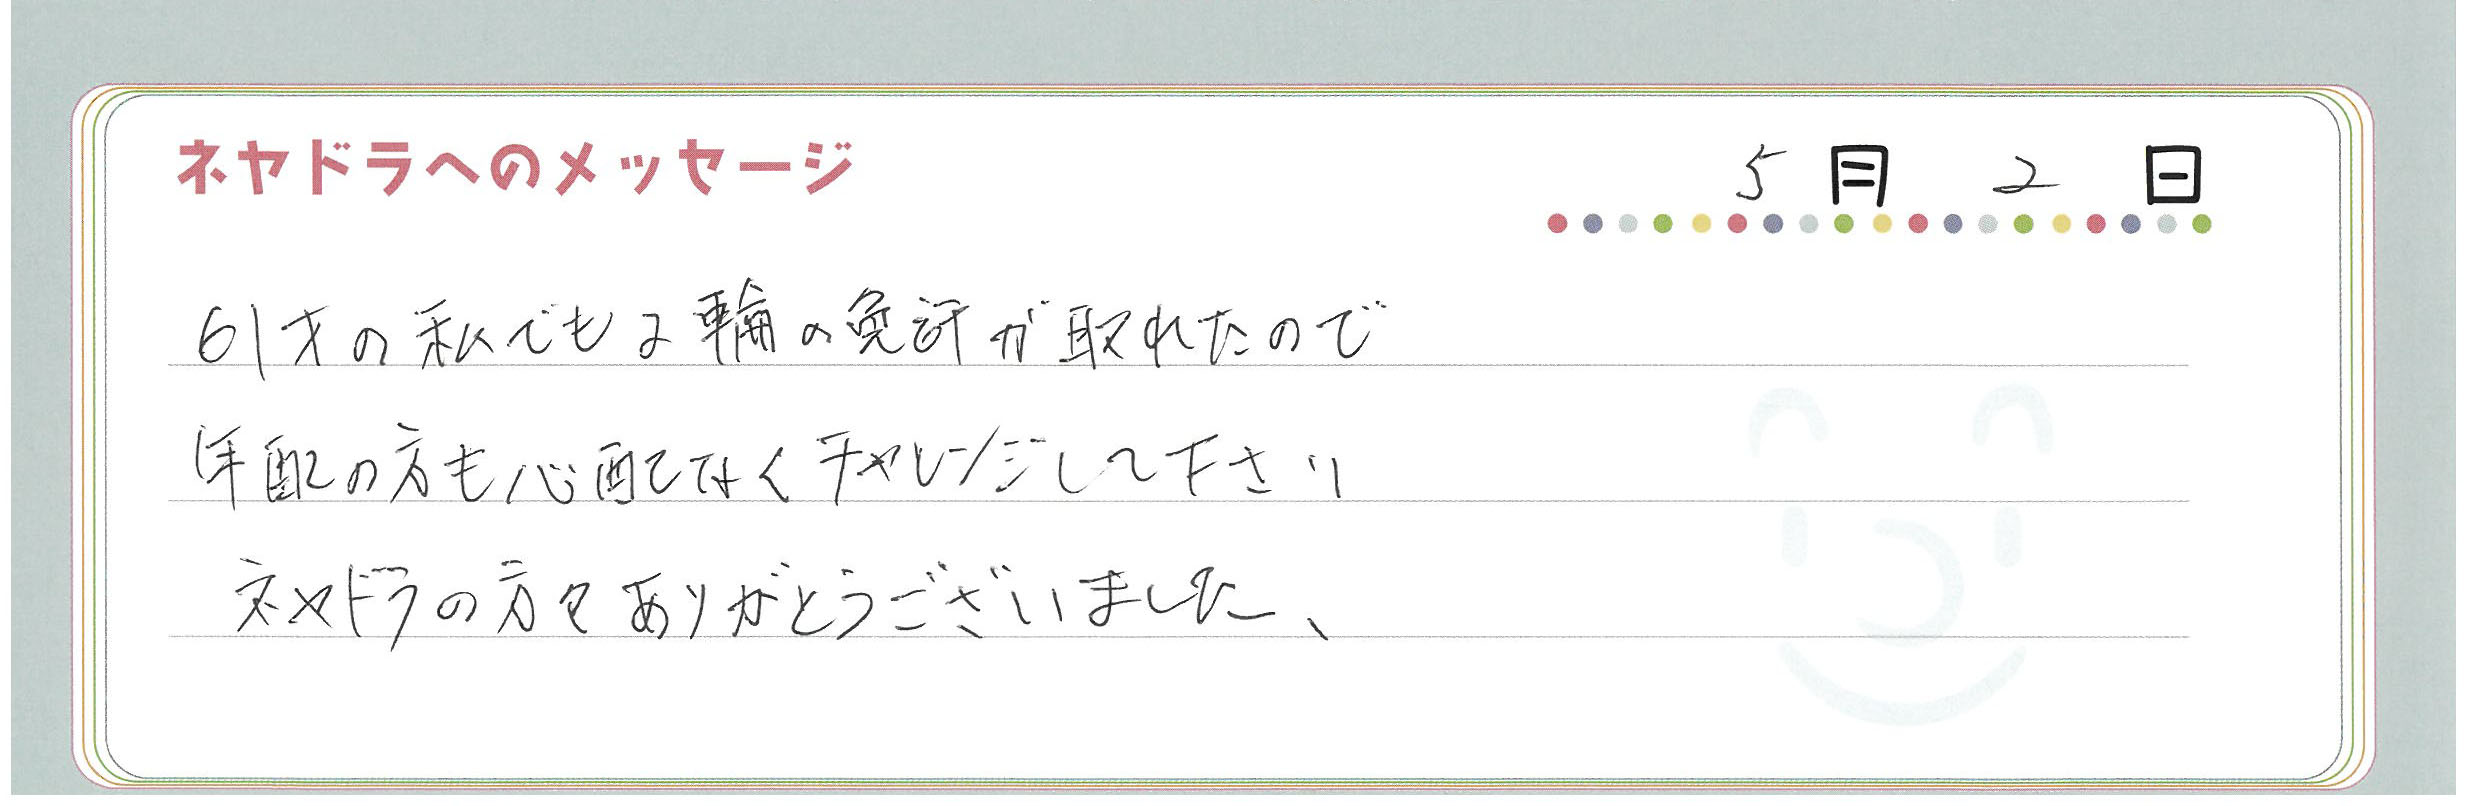 ネヤドラへのメッセージ
5月 2日
61才の私でも2輪の免許が取れたので
年配の方も心配なくチャレンジして下さい
ネヤドラの方々ありがとうございました、